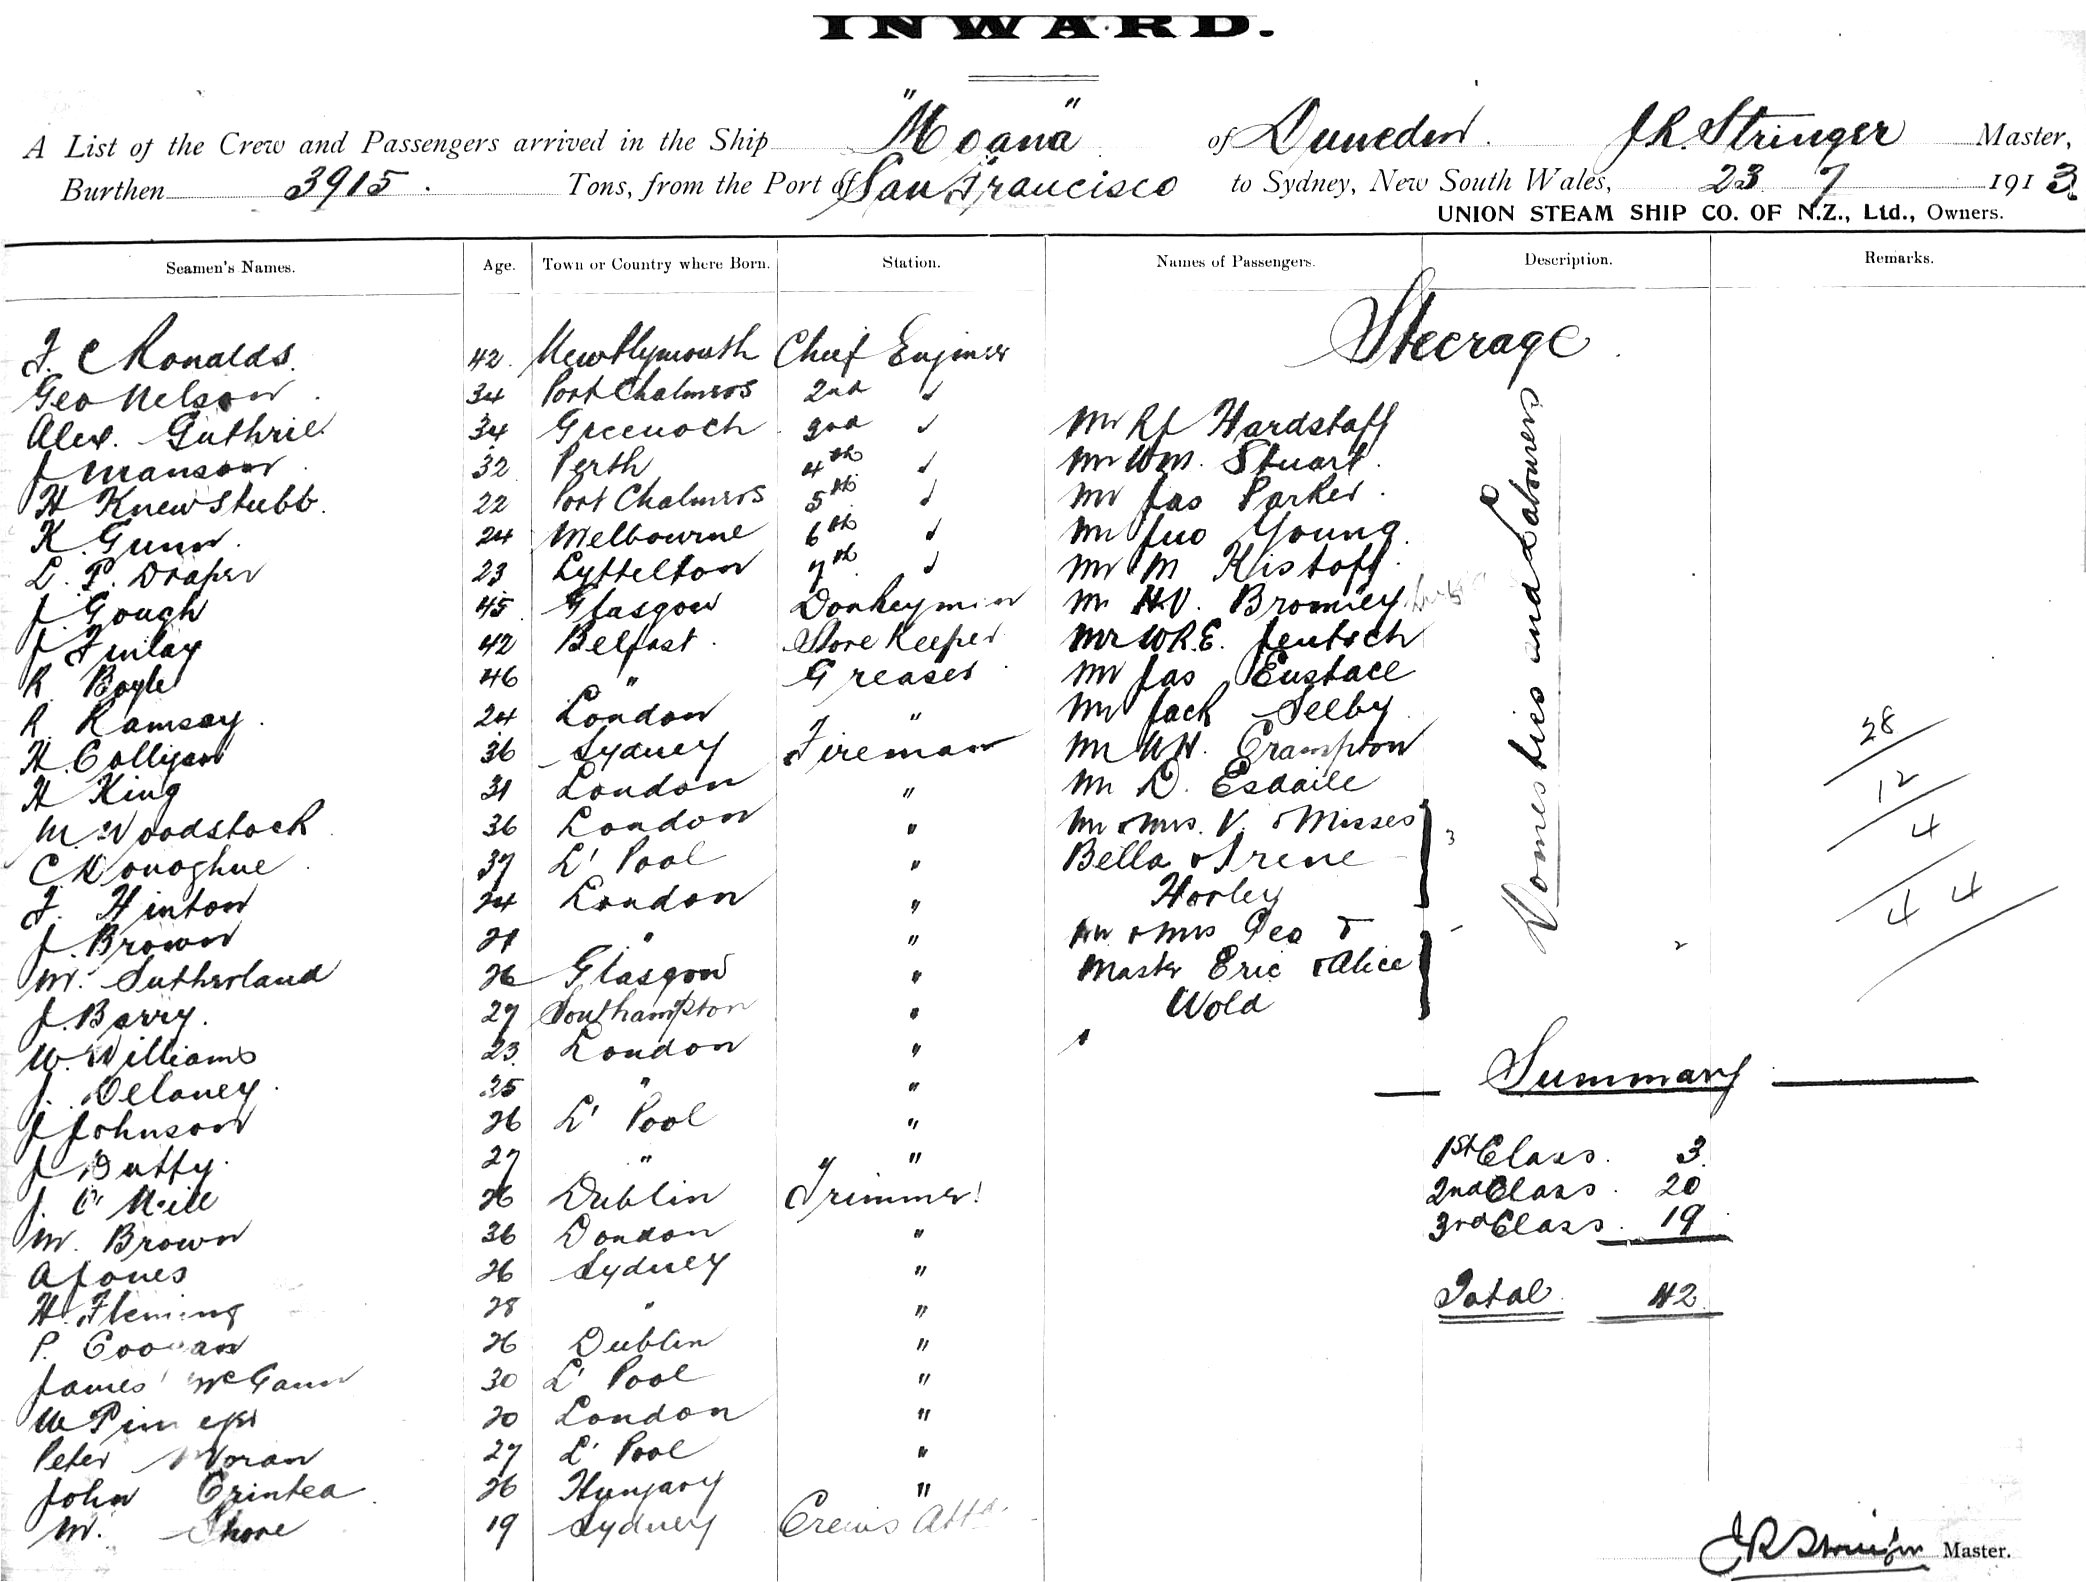 INWARD.
A List of the Crew and Passengers arrived in the Ship "Moana" of Dunedin. J.R. Stringer Master,
Burthen 3915. Tons, from the Port of San Francisco to Sydney, New South Wales, 23 7 1913.
UNION STEAM SHIP CO. OF N.Z., Ltd., Owners.
Seamen's Names. Age. Town or Country where Born. Station. Names of Passengers. Description. Remarks.
Steerage.
J. C Ronalds. 42. New Plymouth Chief Engineer
Geo Nelson. 34 Port Chalmers 2nd "
Alex. Guthrie. 34 Greenock 3rd " Mr RJ Hardstaff
J Manson. 32 Perth 4th " Mr Wm. Stuart.
H Knewstubb. 22 Port Chalmers 5th " Mr Jas Parker.
K. Gunn. 24 Melbourne 6th " Mr Jno Young.
L. P. Draper 23 Lyttelton 7th " Mr M Kistoff.
J Gough 45 Glasgow Donkeyman Mr H.V. Bromley
J Finlay 42 Belfast. Store Keeper Mr W.R.E. Jentsch
R Boyle 46 " Greaser Mr Jas Eustace
R Ramsay. 24 London " Mr Jack Selby
H. Colligan 36 Sydney Fireman Mr W.H. Crampton
H King 31 London " Mr D. Esdaile
M. Woodstock 36 London " Mr & Mrs. V. & Misses
C Donoghue 37 L'Pool " Bella & Irene
F. Hinton 24 London " Horley
J. Brown 21 " " Mr & Mrs Geo &
M. Sutherland 26 Glasgow " Master Eric & Alice
J. Barry. 27 Southampton " Wold
W. Williams 23 London "
J. Delaney. 25 " "
J Johnson 26 L'Pool "
J Duffy. 27 " "
J. O'Neill 26 Dublin Trimmer
M. Brown 36 London "
A Jones 26 Sydney "
H. Fleming 28 " "
P. Coogan 26 Dublin "
James McGann 30 L'Pool "
W 20 London "
Peter Moran 27 L'Pool "
John Crintea. 26 Hungary "
M. Shore 19 Sydney Crews Attd.
Domestics and Labourers
3
28
12
4
4 4
Summary
1st Class. 3.
2nd Class. 20
3rd Class. 19
Total. 42
J R Stringer Master.